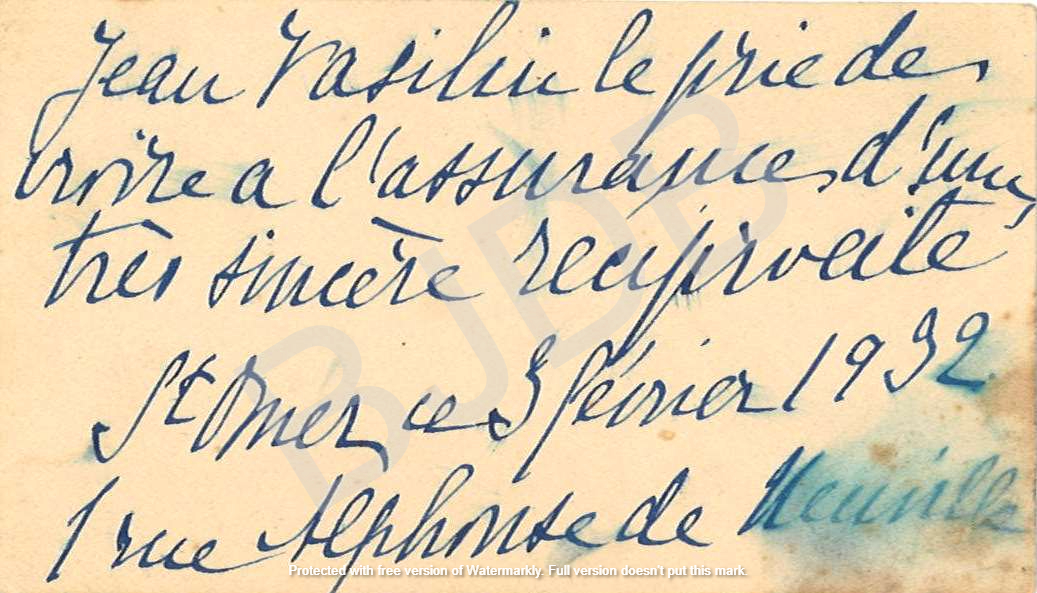 Jean Vasilin le prie de
croire a l'assurance d'une
très sincère reciprocité
St Omer ce 3 février 1932
1 rue Alphonse de Neuville
BJDB
Protected with free version of Watermarkly. Full version doesn't put this mark.